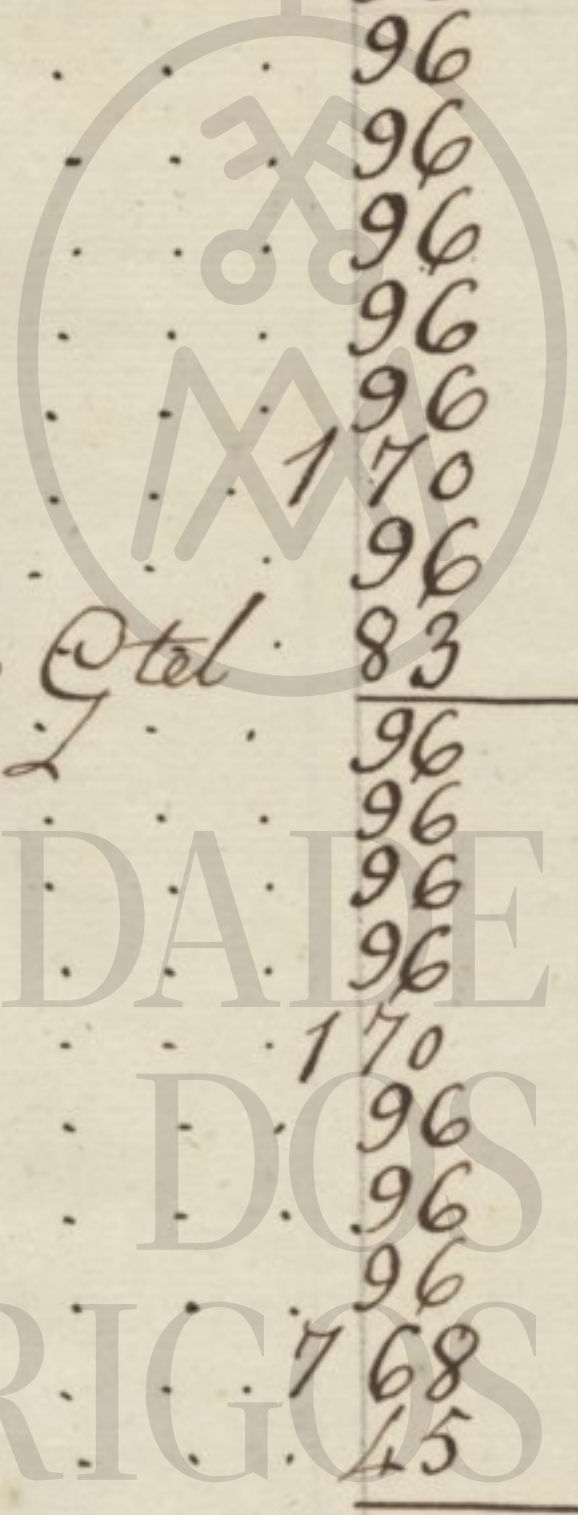 . . . 96
. . . 96
. . . 96
. . . 96
. . . 96
. . . 1 70
. . . 96
. 83
. . . 96
. . . 96
. . . 96
. . . 96
. . . 1 70
. . . 96
. . . 96
. . . 96
. . . 7 68
. . . 45
DADE
DOS
RIGOS